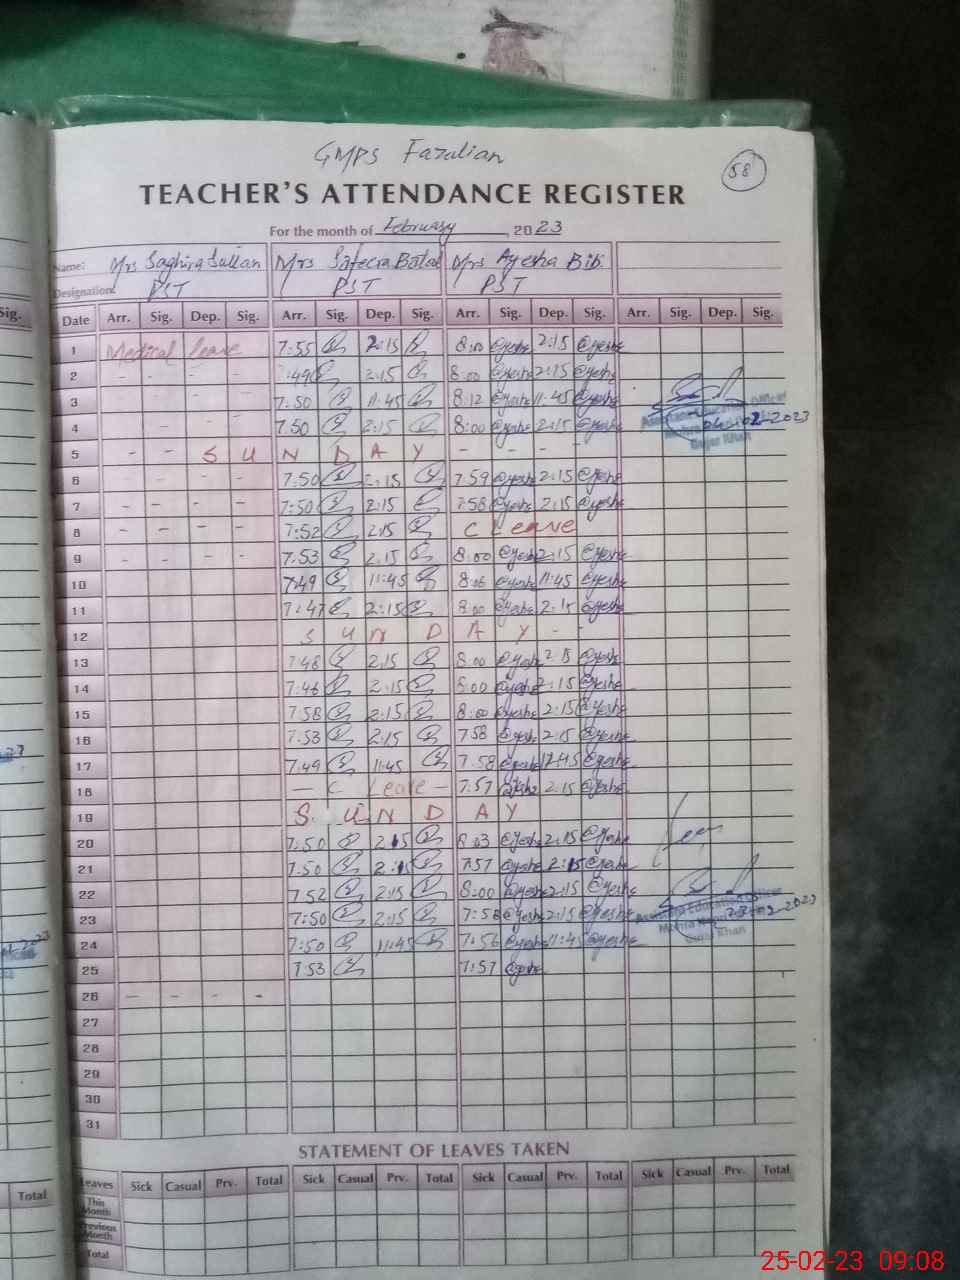 GMPS Fazalian
58
TEACHER'S ATTENDANCE REGISTER
For the month of February, 2023
Name: Mrs Saghira Sultan Mrs Bibi Mrs Ayesha Bibi
Designation: PST PST PST
Sig. Date Arr. Sig. Dep. Sig. Arr. Sig. Dep. Sig. Arr. Sig. Dep. Sig. Arr. Sig. Dep. Sig.
1 Medical leave 7:55 2:15 8:00 Ayesha 2:15 Ayesha
2 - - - - :49 2:15 8:00 Ayesha 2:15 Ayesha
3 - - - - 7:50 11:45 8:12 Ayesha 11:45 Ayesha
4 - - - 7:50 2:15 8:00 Ayesha 2:15 Ayesha Assistant Education Officer 04-02-2023
Gujar Khan
5 - - S U N D A Y - - -
6 - - - 7:50 2:15 7:59 Ayesha 2:15 Ayesha
7 - - - - 7:50 2:15 7:58 Ayesha 2:15 Ayesha
8 - - - - 7:52 2:15 C Leave
9 - - - - 7:53 2:15 8:00 Ayesha 2:15 Ayesha
10 7:49 11:45 8:06 Ayesha 11:45 Ayesha
11 7:47 2:15 8:00 Ayesha 2:15 Ayesha
12 S U N D A Y - -
13 7:48 2:15 8:00 Ayesha 2:15 Ayesha
14 7:46 2:15 8:00 Ayesha 2:15 Ayesha
15 7:58 2:15 8:00 Ayesha 2:15 Ayesha
16 7:53 2:15 7:58 Ayesha 2:15 Ayesha
17 7:49 11:45 7:58 Ayesha Ayesha
18 - C Leave - 7:57 Ayesha 2:15 Ayesha
19 S U N D A Y
20 7:50 2:15 8:03 Ayesha 2:15 Ayesha
21 7:50 2:15 7:57 Ayesha 2:15 Ayesha
22 7:52 2:15 8:00 Ayesha 2:15 Ayesha
23 7:50 2:15 7:58 Ayesha 2:15 Ayesha Assistant Education Officer -02-2023
Gujar Khan
24 7:50 11:45 7:56 Ayesha 11:45 Ayesha
25 7:53 7:57 Ayesha
26 - - - -
27
28
29
30
31
STATEMENT OF LEAVES TAKEN
Total Leaves Sick Casual Prv. Total Sick Casual Prv. Total Sick Casual Prv. Total Sick Casual Prv. Total
This Month
Previous Month
Total
25-02-23 09:08